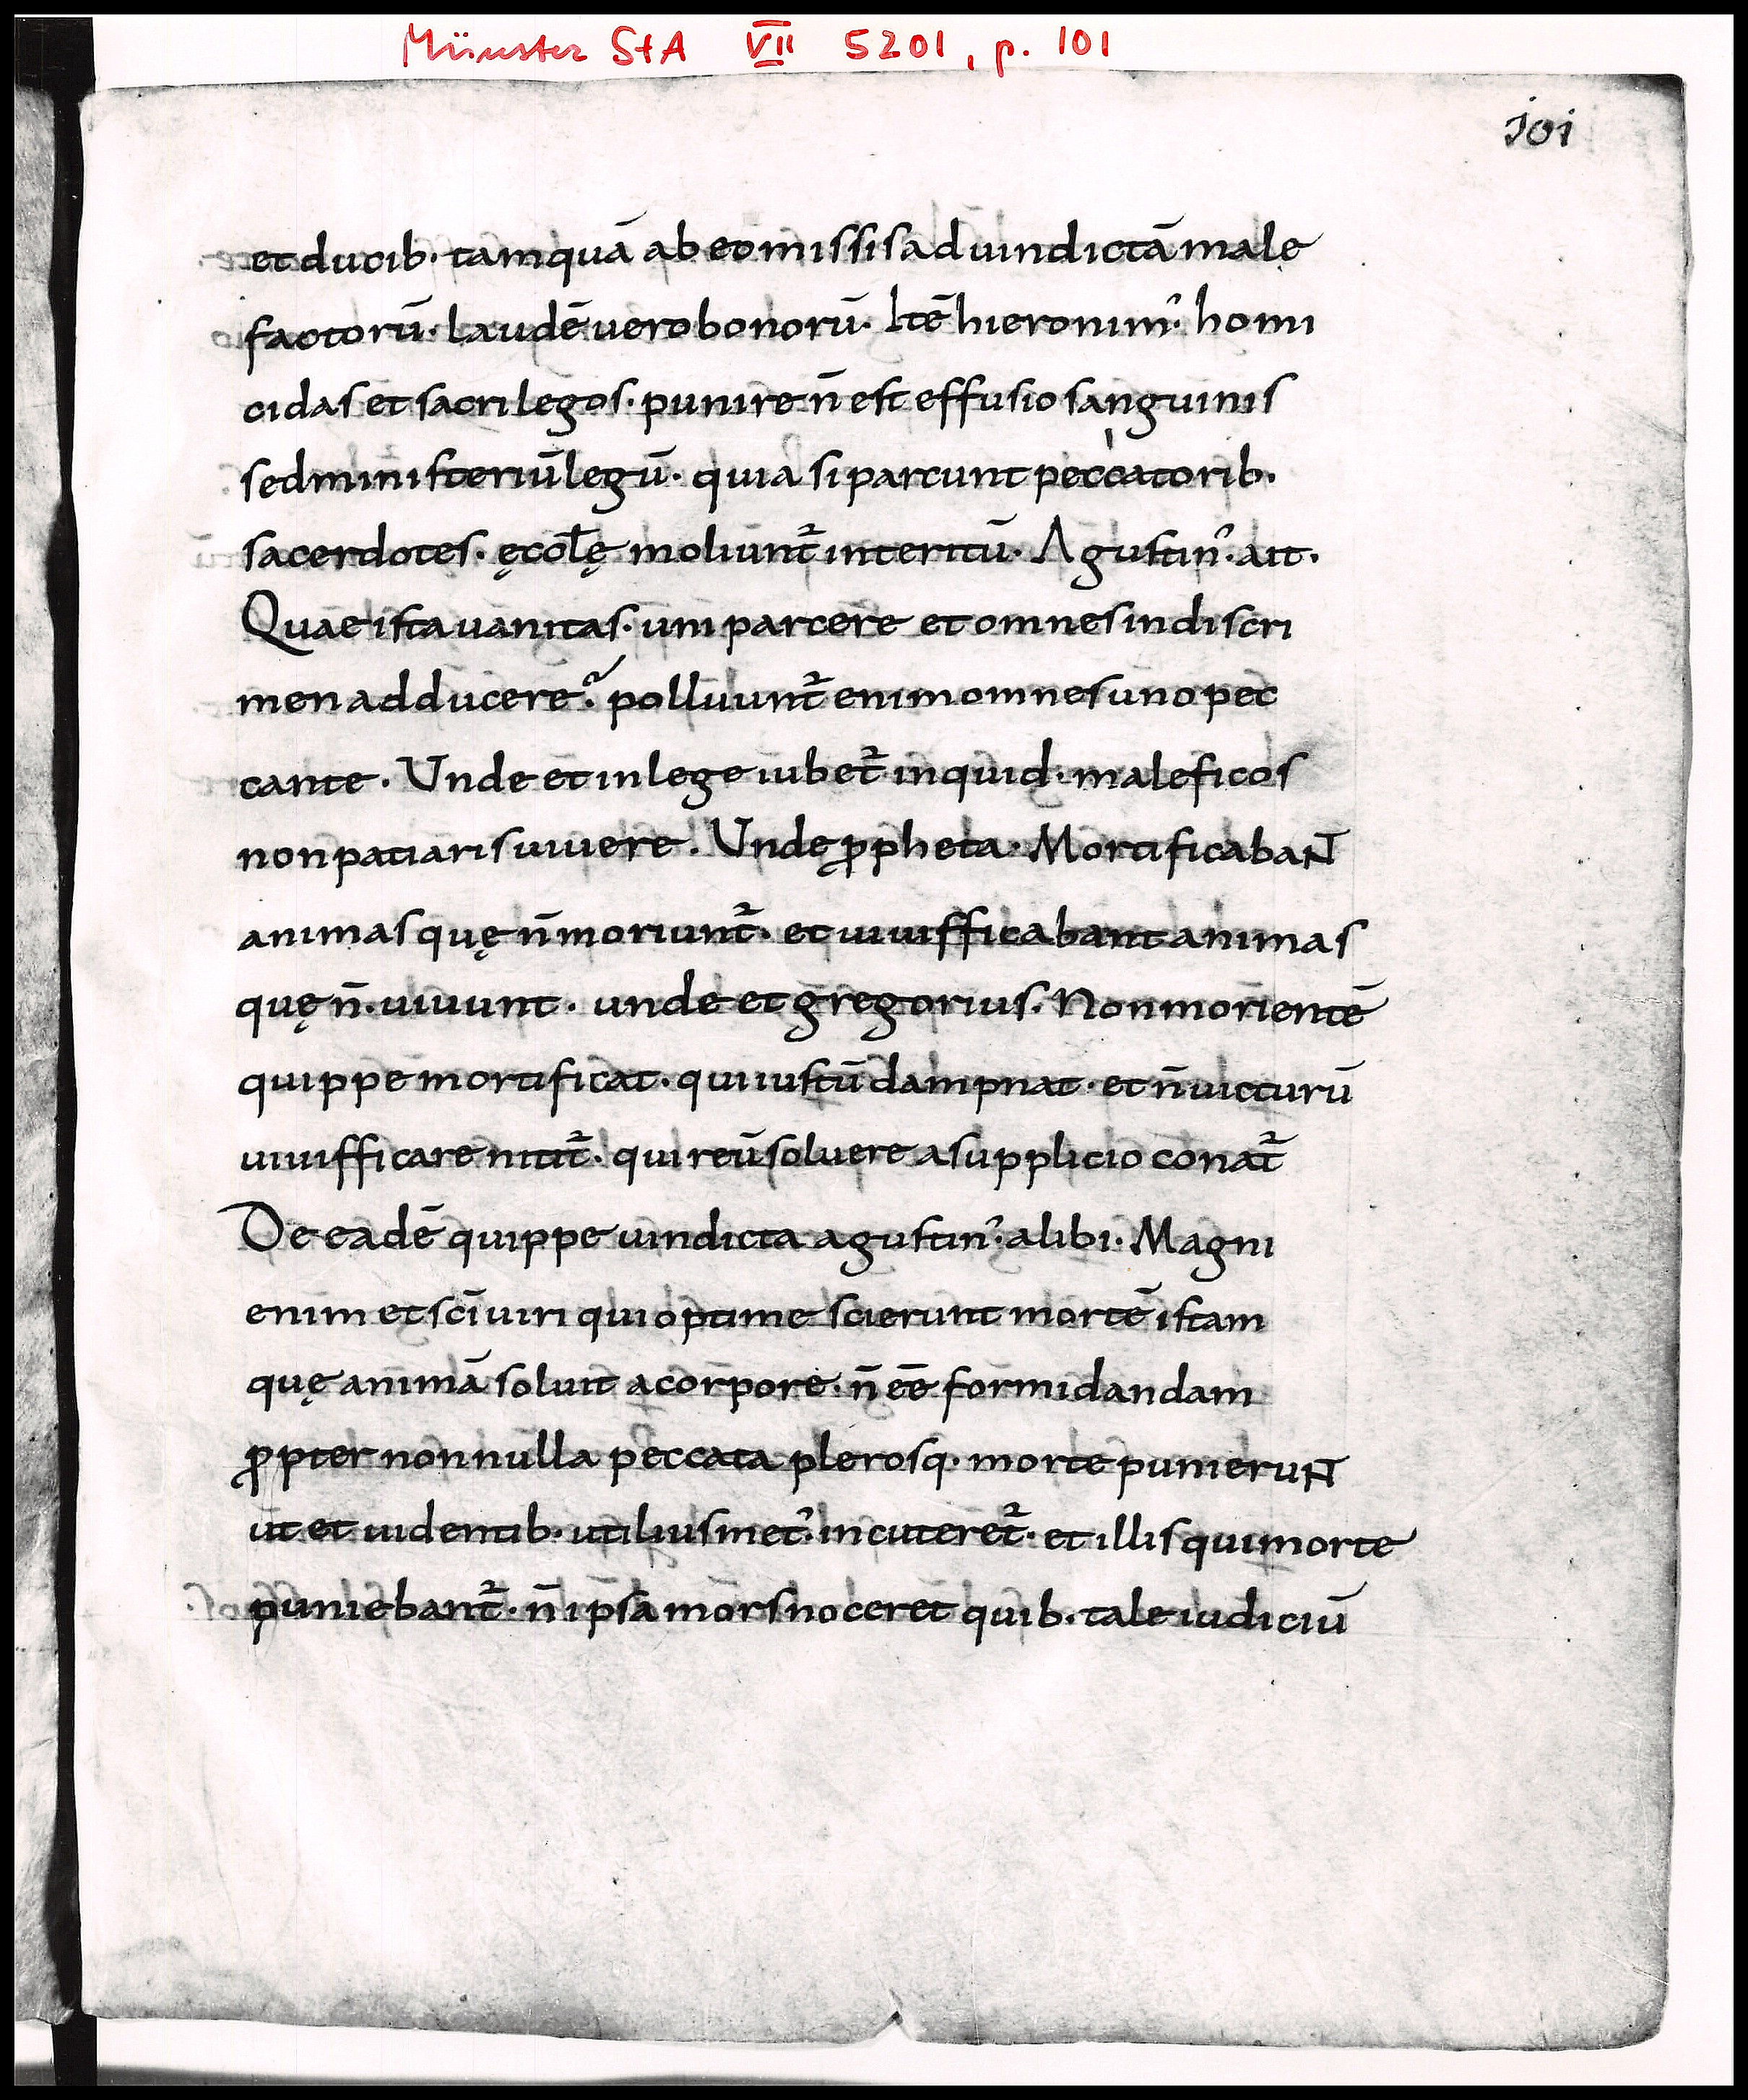 Münster StA VII 5201, p. 101
101
et ducib· tamquā ab eo missis ad uindictā male
factorū· laudē uero bonorū· Itē hieronim᾿· homi
cidas et sacrilegos· punire n̄ est effusio sanguinis
sed ministeriū legū· quia si parcunt peccatorib·
sacerdotes· ęcclę moliunt᷑ interitū· Agustin᾿· ait·
Quae ista uanitas· uni parcere et omnes in discri
men adducere? polluunt᷑ enim omnes uno pec
cante· Unde et in lege iubet᷑ inquid· maleficos
non patiaris uiuere· Unde ꝓpheta· Mortificabant
animas quę n̄ moriunt᷑· et uiuifficabant animas
quę n̄· uiuunt· unde et gregorius· Non morientē
quippe mortificat· qui iustū dampnat· et n̄ uicturū
uiuifficare nitit᷑· qui reū soluere a supplicio conat᷑
De eadē quippe uindicta agustin᾿· alibi· Magni
enim et sc̄i uiri qui optime scierunt mortē istam
quę animā soluit a corpore· n̄ eē formidandam
ꝓpter nonnulla peccata plerosq· morte punierunt
ut et uidentib· utilius met᾿· incuteret᷑· et illis qui morte
puniebant᷑· n̄ ipsa mors noceret quib· tale iudiciū